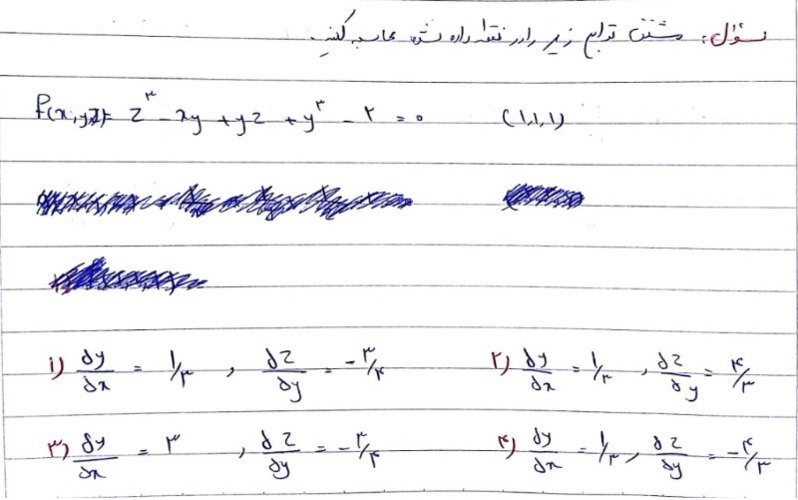 سؤال: مشتق توابع زیر را در نقطه داده شده محاسبه کنید.
f(x,y,z)= z^۳ - xy + yz + y^۳ - ۲ = ۰ (۱,۱,۱)
۱) ∂y/∂x = ۱/۳ , ∂z/∂y = -۳/۴ ۲) ∂y/∂x = ۱/۳ , ∂z/∂y = ۴/۳
۳) ∂y/∂x = ۳ , ∂z/∂y = -۳/۴ ۴) ∂y/∂x = ۱/۳ , ∂z/∂y = -۴/۳